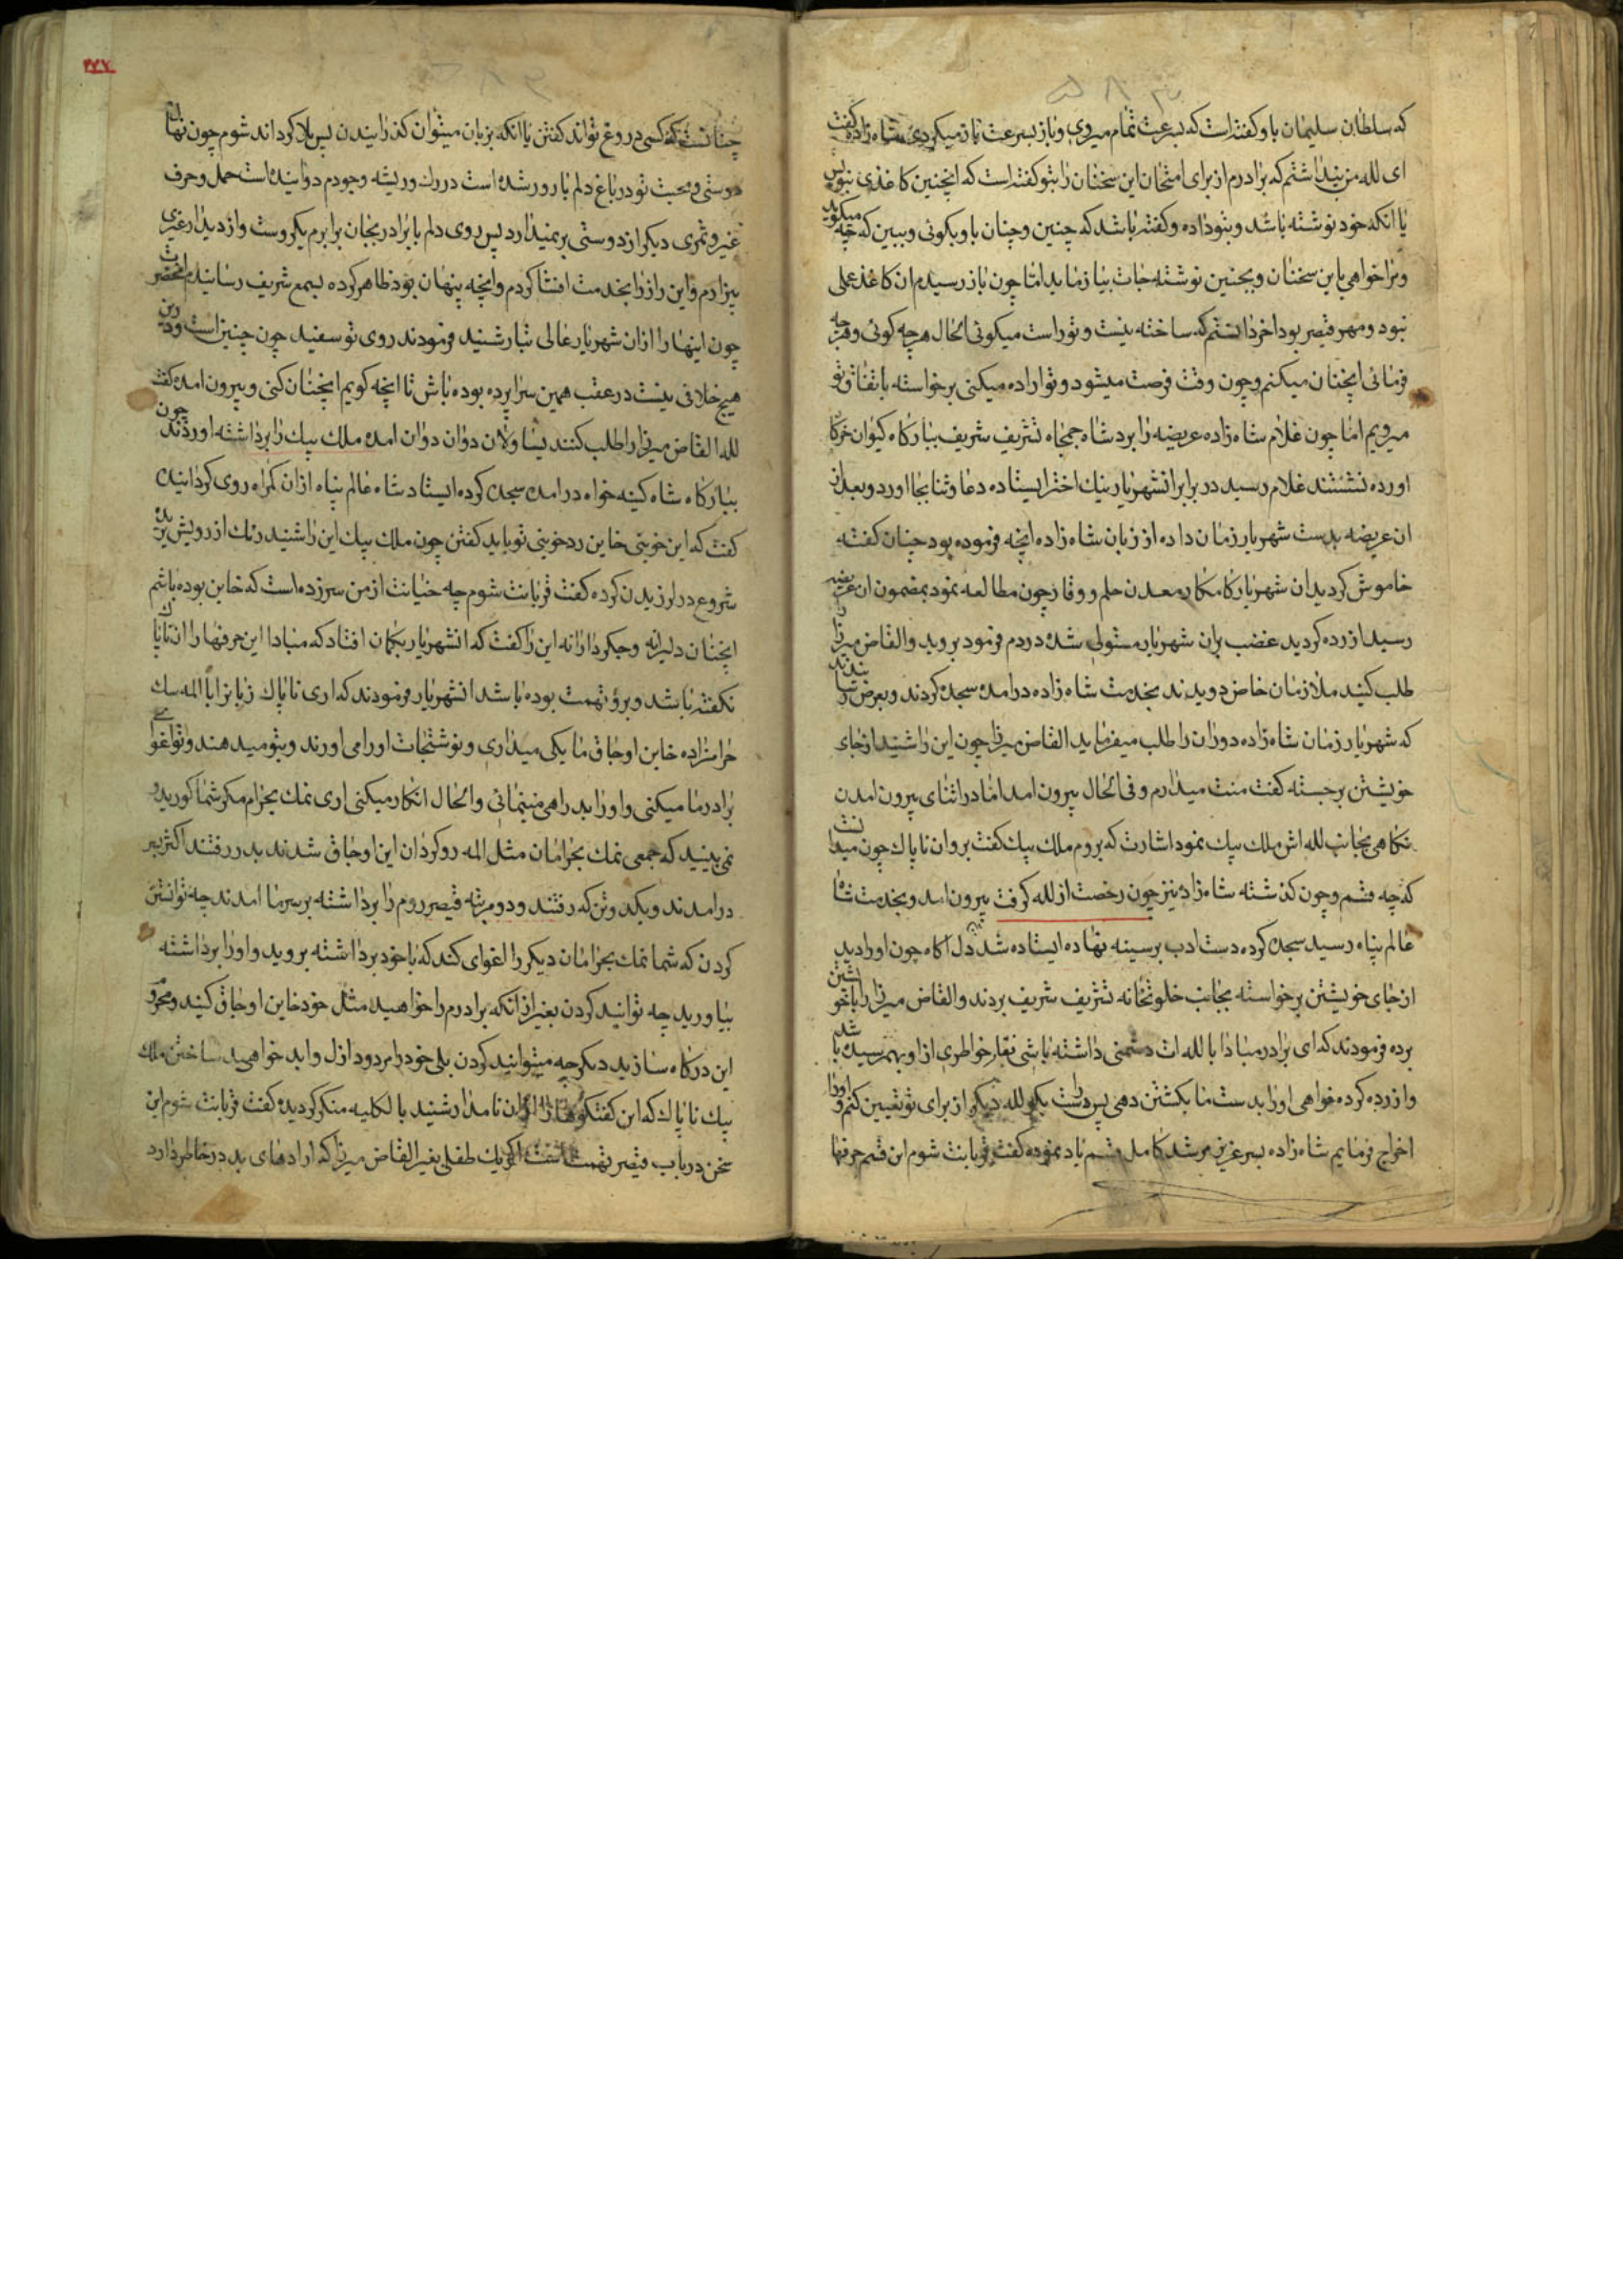 که سلطان سلیمان باو کفته است که بسرعت تمام میروی و باز بسرعت باز میکردی شاه زاده کفت
ای لله من پنداشتم که برادرم از برای امتحان این سخنان را بتو کفته است که اینچنین کاغذی بنویس
یا انکه خود نوشته باشد و بتو داده و کفته باشد که چنین و چنان باو بکوئی و ببین که چه میکوید
و ترا خواهی باین سخنان و بچنین نوشته جات بیازماید اما چون باز رسیدم ان کاغذ عملی
نبود و مهر قیصر بود اخر دانستم که ساخته نیست و تو راست میکوئی الحال هرچه کوئی و هرچه
فرمائی انچنان میکنم و چون وقت فرصت میشود و تو اراده میکنی برخواسته باتفاق تو
میرویم اما چون غلام شاه زاده عریضه را برد شاه جمجاه تشریف شریف ببارکاه کیوان خرکاه
اورده نشستند غلام رسید در برابر انشهریار نیک اختر ایستاده دعا و ثنا بجا اورد و بعد از
ان عریضه بدست شهریار زمان داده از زبان شاه زاده انچه فرموده بود چنان کفته
خاموش کردید ان شهریار کامکار معدن حلم و وقار چون مطالعه نمود بمضمون ان عریضه
رسید ازرده کردید غضب بران شهریار مستولی شده در دم فرمود بروید و القاص میرزا را
طلب کنید ملازمان خاص دویدند بخدمت شاه زاده درامده سجده کردند و بعرض رسانیدند
که شهریار زمان شاه زاده دوران را طلب میفرماید القاص میرزا چون این را شنید از جای
خویشتن برجسته کفت منت میدارم و فی الحال بیرون امد اما در اثنای بیرون امدن
نکاهی بجانب لله اش ملک بیک نمود اشارت که بروم ملک بیک کفت برو ان ناپاک چون میدانست
که چه قسم و چون کذشته شاه زاده نیز چون رخصت از لله کرفت بیرون امد و بخدمت شاه
عالم پناه رسید سجده کرده دست ادب بر سینه نهاده ایستاده شد دل اکاه چون او را دید
از جای خویشتن برخواسته بجانب خلوتخانه تشریف شریف بردند و القاص میرزا را با خویشتن
برده فرمودند که ای برادر مبادا با لله ات دشمنی داشته باشی نقار خواطری از او بهم رسیده باشد
و ازرده کرده خواهی او را بدست ما بکشتن دهی پس راست بکو لله دیکر از برای تو تعیین کنم و او را
اخراج فرمایم شاه زاده بسر عزیز مرشد کامل قسم یاد نموده کفت قربانت شوم این قسم حرفها
۲۷۷
چنانست که کسی دروغ تواند کفتن یا انکه بزبان میتوان کذرانیدن پس بلا کرداند شوم چون نهال
دوستی و محبت تو در باغ دلم بارور شده است در رک و ریشه وجودم دوانیده است حمل و حرف
غیر و ثمری دیکر از دوستی بر نمیدارد پس روی دلم با برادر بجان برابرم یکروست و از دیدار غیری
بیزارم و این راز را بخدمت افشا کردم و انچه پنهان بود ظاهر کرده بسمع شریف رسانیدم انحضرت
چون اینها را از ان شهریار عالی تبار شنید فرمودند روی تو سفید چون چنین است و درین
هیچ خلافی نیست در عقب همین سراپرده بوده باش تا انچه کویم انچنان کنی و بیرون امده کفت
لله القاص میرزا را طلب کنند یساولان دوان دوان امده ملک بیک را برداشته اوردند چون
ببارکاه شاه کینه خواه درامده سجده کرده ایستاد شاه عالم پناه از ان کمراه روی کردانیده
کفت که این خوبتی خاین رد خوبتی تو باید کفتن چون ملک بیک این را شنید رنک از رویش پریده
شروع در لرزیدن کرده کفت قربانت شوم چه خیانت از من سرزده است که خاین بوده باشم
انچنان دلیرانه و جکردارانه این را کفت که انشهریار بکمان افتاد که مبادا این حرفها را ان ناپاک
نکفته باشد و برو تهمت بوده باشد انشهریار فرمودند که اری ناپاک زبانرا با المه سک
حرامزاده خاین اوجاق ما یکی میداری و نوشتجات او را می اورند و بتو میدهند و تو اغوای
برادر ما میکنی و او را بد راهی مینمائی و الحال انکار میکنی اری نمک بحرام مکر شما کورید و
نمی بینید که جمعی نمک بحرامان مثل المه روکردان این اوجاق شدند بدر رفتند اکثر بیر
درامدند و یکدوتن که رفتند و دو مرتبه قیصر روم را برداشته بر سر ما امدند چه توانستن
کردن که شما نمک بحرامان دیکر را اغوای کند که با خود برداشته بروید و او را برداشته
بیاورید چه توانید کردن بغیر از انکه برادرم را خواهید مثل خود خاین اوجاق کنید و محروم
این درکاه سازید دیکر چه میتوانید کردن بلی خود را مردود ازل و ابد خواهید ساختن ملک
بیک ناپاک که این کفتکوها را از ان نامدار شنید بالکلیه منکر کردیده کفت قربانت شوم این
سخن در باب قیصر تهمت است اکر یک طفلی بغیر القاص میرزا که ارادهای بد در خاطر دارد